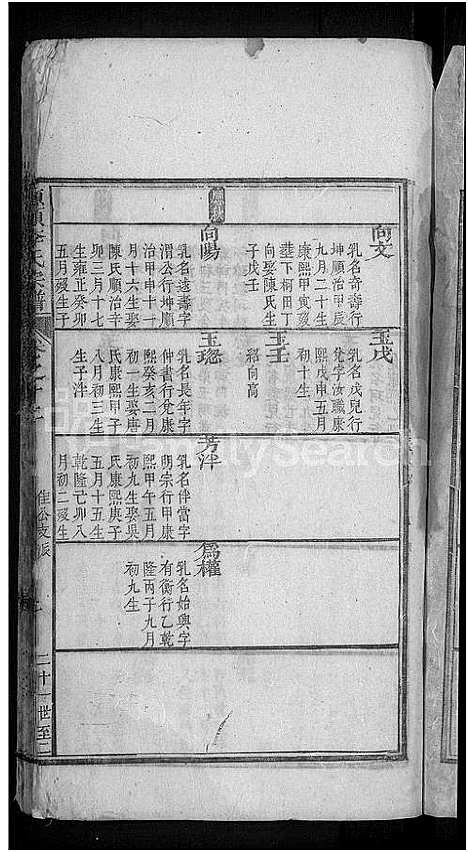 向文
乳名奇壽行
坤順治甲辰
九月二十生
康熙甲寅歿
塟下柯田丁
向娶陳氏生
子戊壬
向陽
乳名遠壽字
渭公行坤順
治甲申十一
月十六生娶
陳氏順治辛
卯三月十七
生雍正癸卯
五月歿生子
玉戊
乳名戊兒行
兊字汝職康
熙戊申五月
初十生
玉壬
紹向高
玉璁
乳名長年字
仲書行兊康
熙癸亥二月
初一生娶唐
氏康熙甲子
八月初三生
生子泮
芳泮
乳名伴當字
明宗行甲康
熙甲午五月
初九生娶吳
氏康熙庚子
五月十五生
乾隆己卯八
月初二歿生
為權
乳名始興字
有衡行乙乾
隆丙子九月
初九生
李氏宗譜
卷之十
佳公支派
二十一世至二